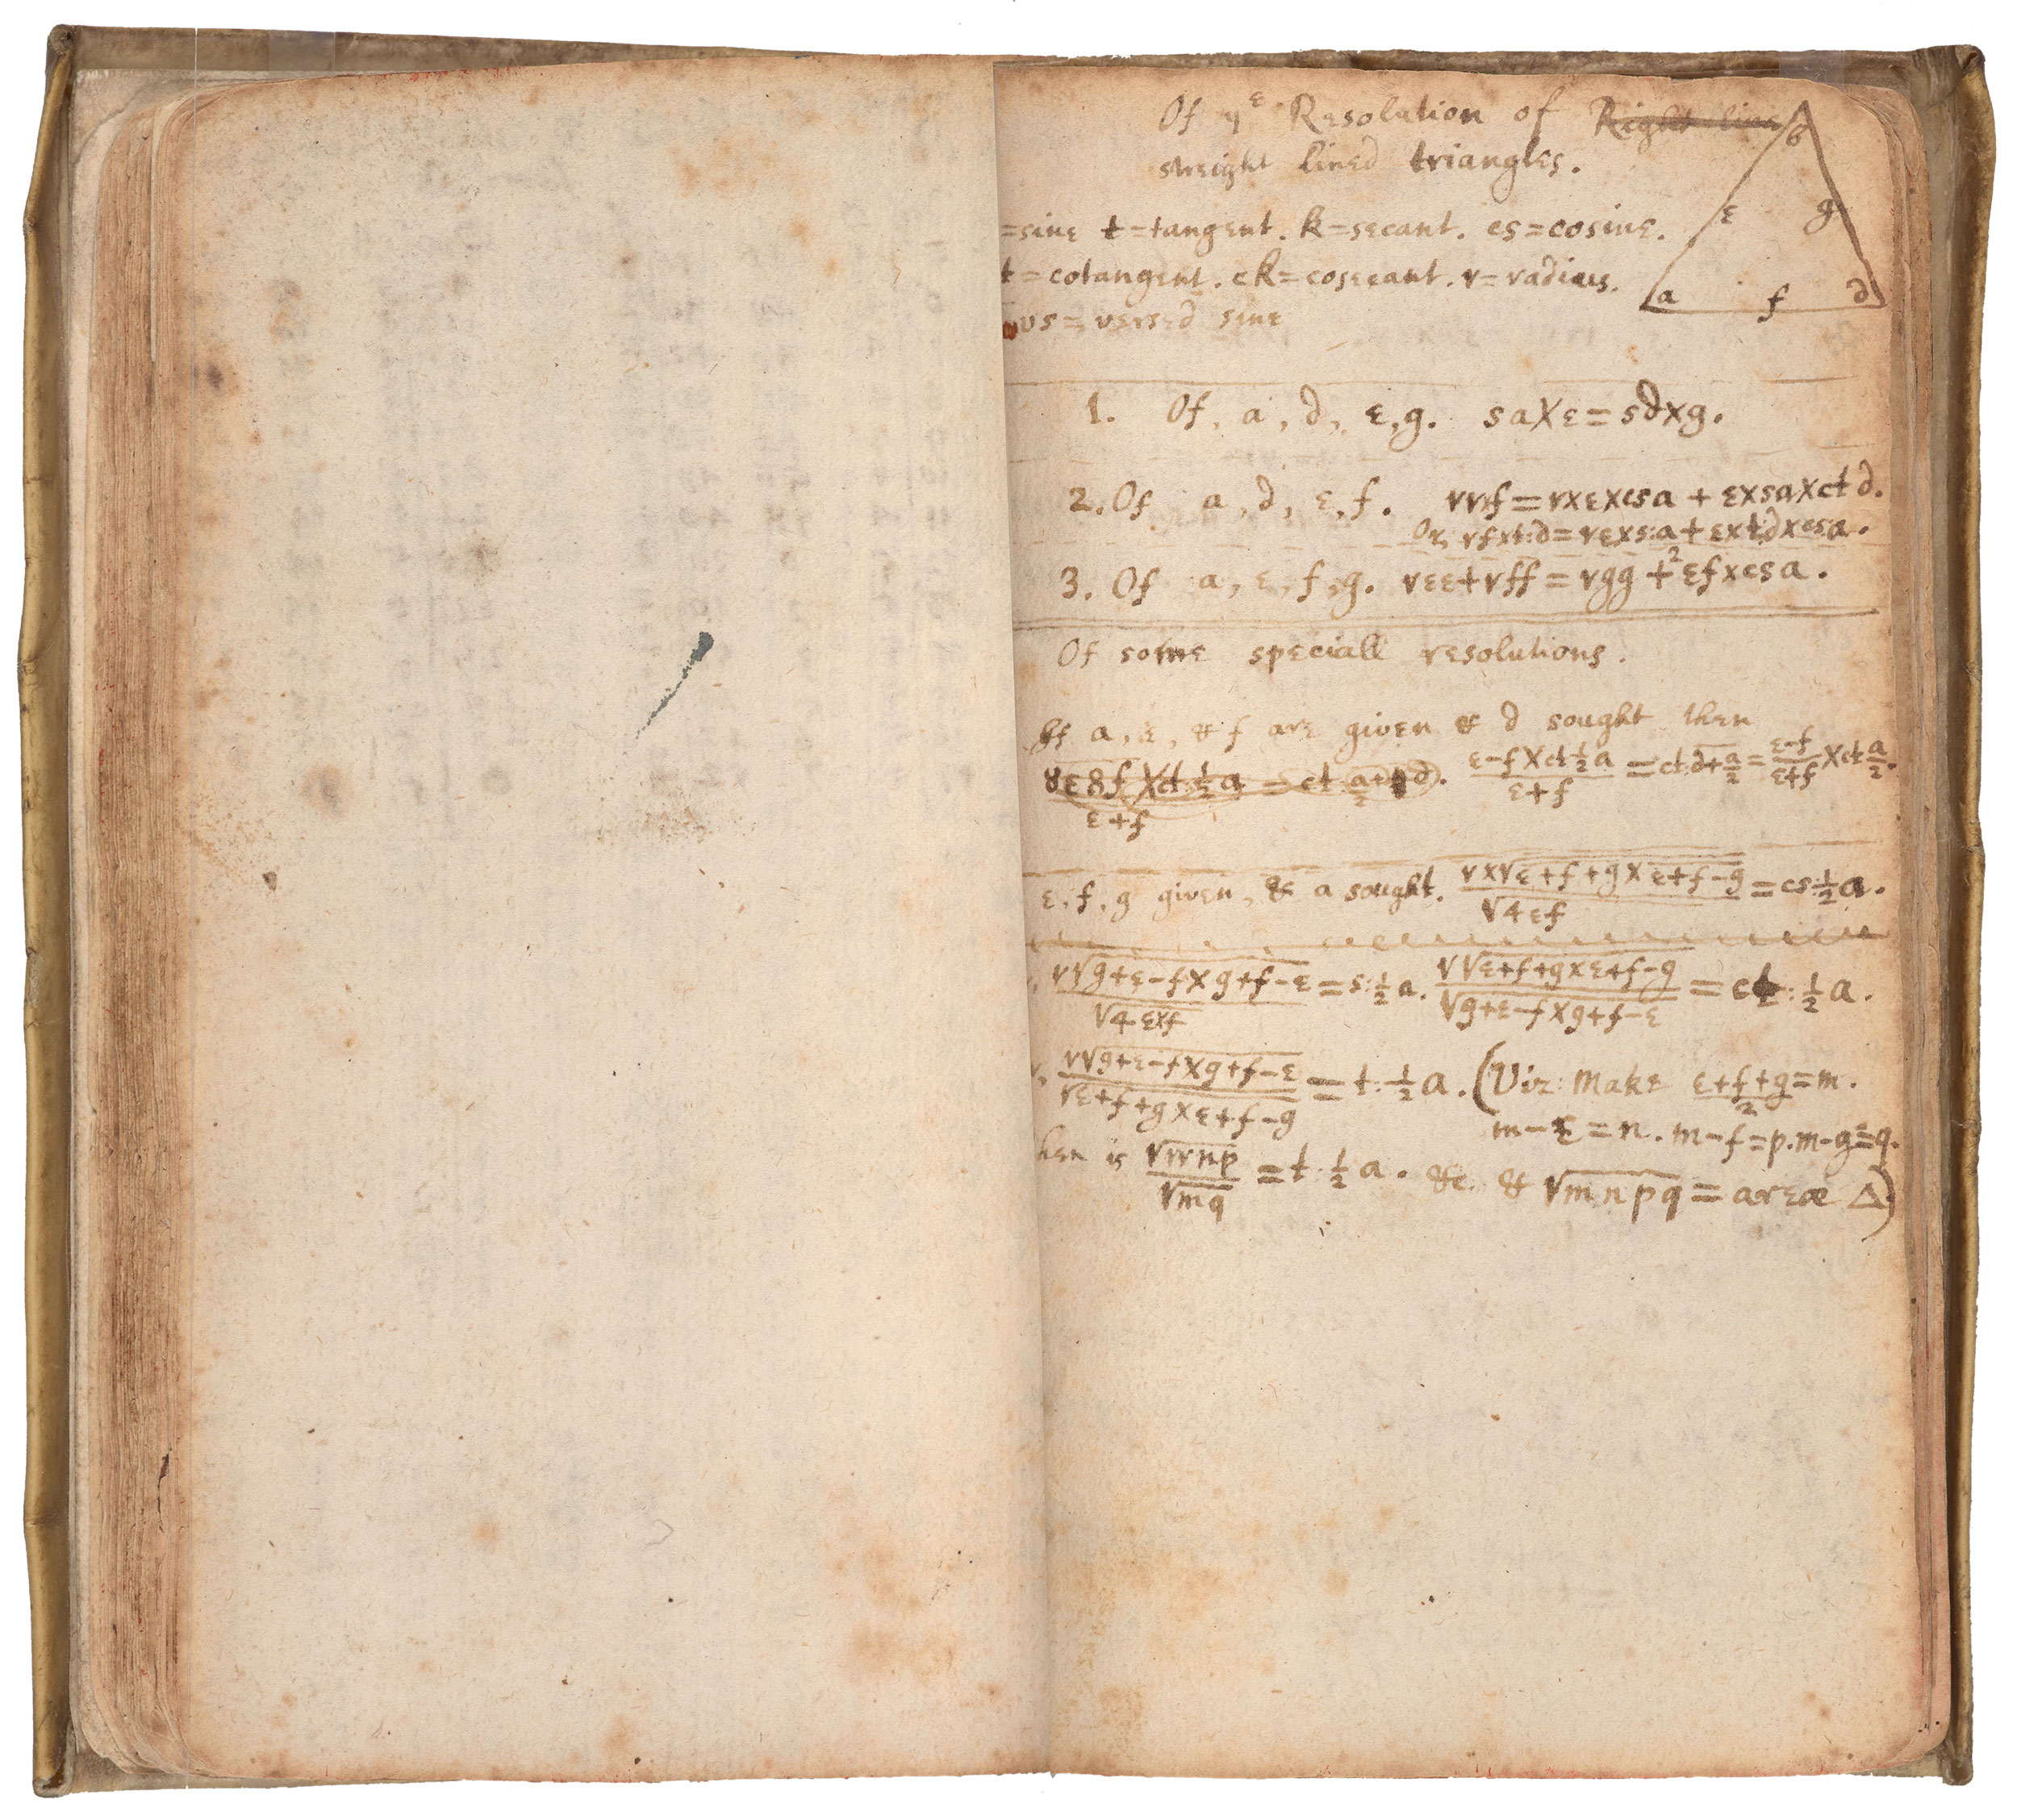 Of yᵉ Resolution of Right line
streight lined triangles.
b
e g
a f d
=sine t=tangent. k=secant. cs=cosine.
t=cotangent. ck=cosecant. r=radius.
vs=versed sine
1. Of, a, d, e, g. sa×e=sd×g.
2. Of a, d, e, f. rrf=r×e×csa + e×sa×ct d.
Or, rf×t:d=re×s:a+e×t:d×cs:a.
3. Of a, e, f, g. ree+rff=rgg+2ef×csa.
Of some speciall resolutions.
If a, e, & f are given & d sought then
e−f×ct ½a / e+f = ct:d+a/2 = e−f/e+f ×ct a/2.
e+f
e, f, g given, & a sought. r×√e+f+g×e+f−g / √4ef = cs:½a.
r√g+e−f×g+f−e / √4e×f = s:½a. r√e+f+g×e+f−g / √g+e−f×g+f−e = ct:½a.
r√g+e−f×g+f−e / √e+f+g×e+f−g = t:½a. (Viz: Make e+f+g/2=m.
m−e=n. m−f=p. m−g=q.
hen is √rrnp / √mq = t:½a. &c. & √mnpq = areæ Δ)